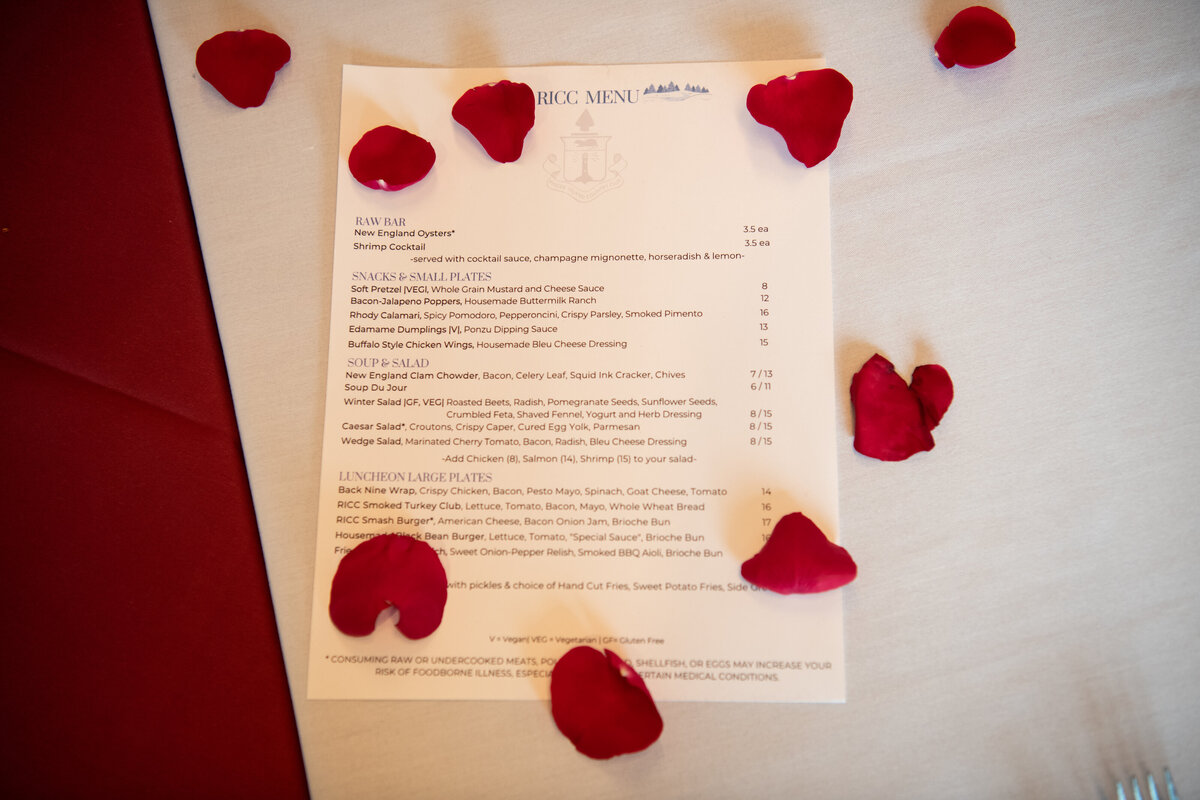 RICC MENU
RAW BAR
New England Oysters* 3.5 ea
Shrimp Cocktail 3.5 ea
-served with cocktail sauce, champagne mignonette, horseradish & lemon-
SNACKS & SMALL PLATES
Soft Pretzel |VEG|, Whole Grain Mustard and Cheese Sauce 8
Bacon-Jalapeno Poppers, Housemade Buttermilk Ranch 12
Rhody Calamari, Spicy Pomodoro, Pepperoncini, Crispy Parsley, Smoked Pimento 16
Edamame Dumplings |V|, Ponzu Dipping Sauce 13
Buffalo Style Chicken Wings, Housemade Bleu Cheese Dressing 15
SOUP & SALAD
New England Clam Chowder, Bacon, Celery Leaf, Squid Ink Cracker, Chives 7 / 13
Soup Du Jour 6 / 11
Winter Salad |GF, VEG| Roasted Beets, Radish, Pomegranate Seeds, Sunflower Seeds,
Crumbled Feta, Shaved Fennel, Yogurt and Herb Dressing 8 / 15
Caesar Salad*, Croutons, Crispy Caper, Cured Egg Yolk, Parmesan 8 / 15
Wedge Salad, Marinated Cherry Tomato, Bacon, Radish, Bleu Cheese Dressing 8 / 15
-Add Chicken (8), Salmon (14), Shrimp (15) to your salad-
LUNCHEON LARGE PLATES
Back Nine Wrap, Crispy Chicken, Bacon, Pesto Mayo, Spinach, Goat Cheese, Tomato 14
RICC Smoked Turkey Club, Lettuce, Tomato, Bacon, Mayo, Whole Wheat Bread 16
RICC Smash Burger*, American Cheese, Bacon Onion Jam, Brioche Bun 17
Black Bean Burger, Lettuce, Tomato, "Special Sauce", Brioche Bun
Sweet Onion-Pepper Relish, Smoked BBQ Aioli, Brioche Bun
with pickles & choice of Hand Cut Fries, Sweet Potato Fries, Side
V = Vegan| VEG = Vegetarian | GF= Gluten Free
* CONSUMING RAW OR UNDERCOOKED MEATS, SHELLFISH, OR EGGS MAY INCREASE YOUR
RISK OF FOODBORNE ILLNESS, MEDICAL CONDITIONS.